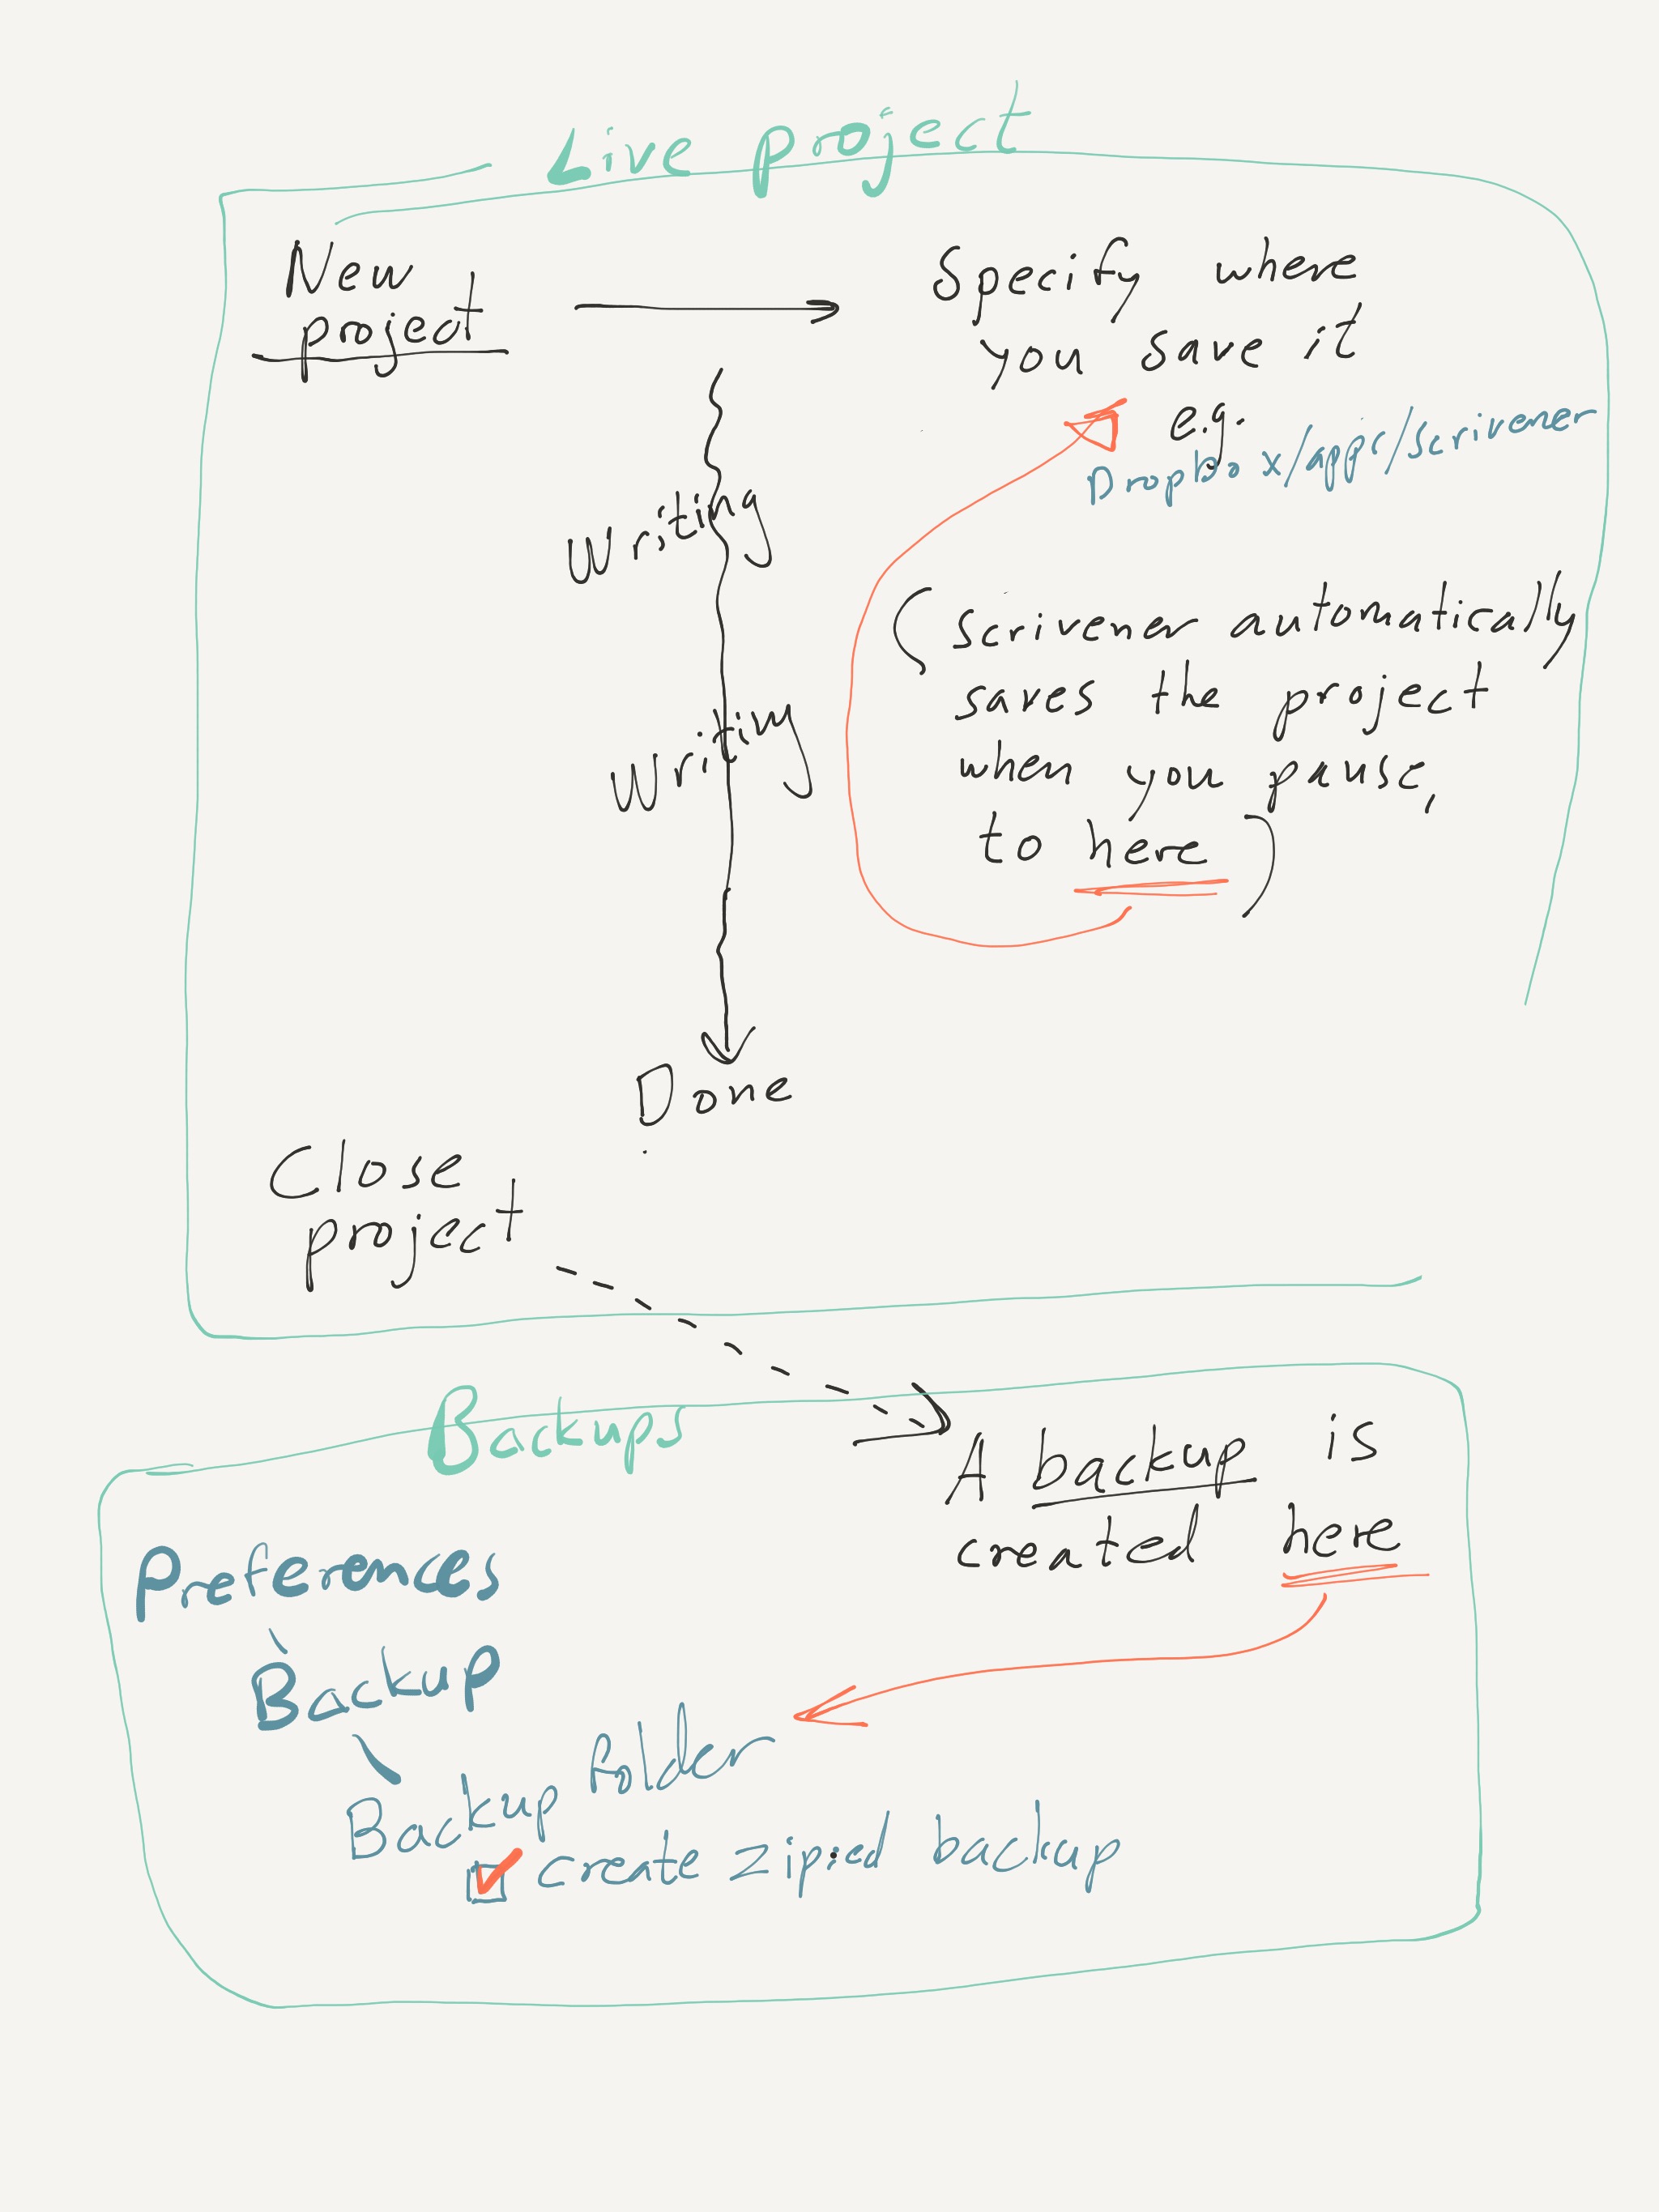 Live project
New
project
Specify where
you save it
e.g.
Dropbox/apps/scrivener
Writing
(scrivener automatically
saves the project
when you pause,
to here)
Writing
Done
Close
project
Backups
A backup is
created here
Preferences
Backup
Backup folder
create zipped backup